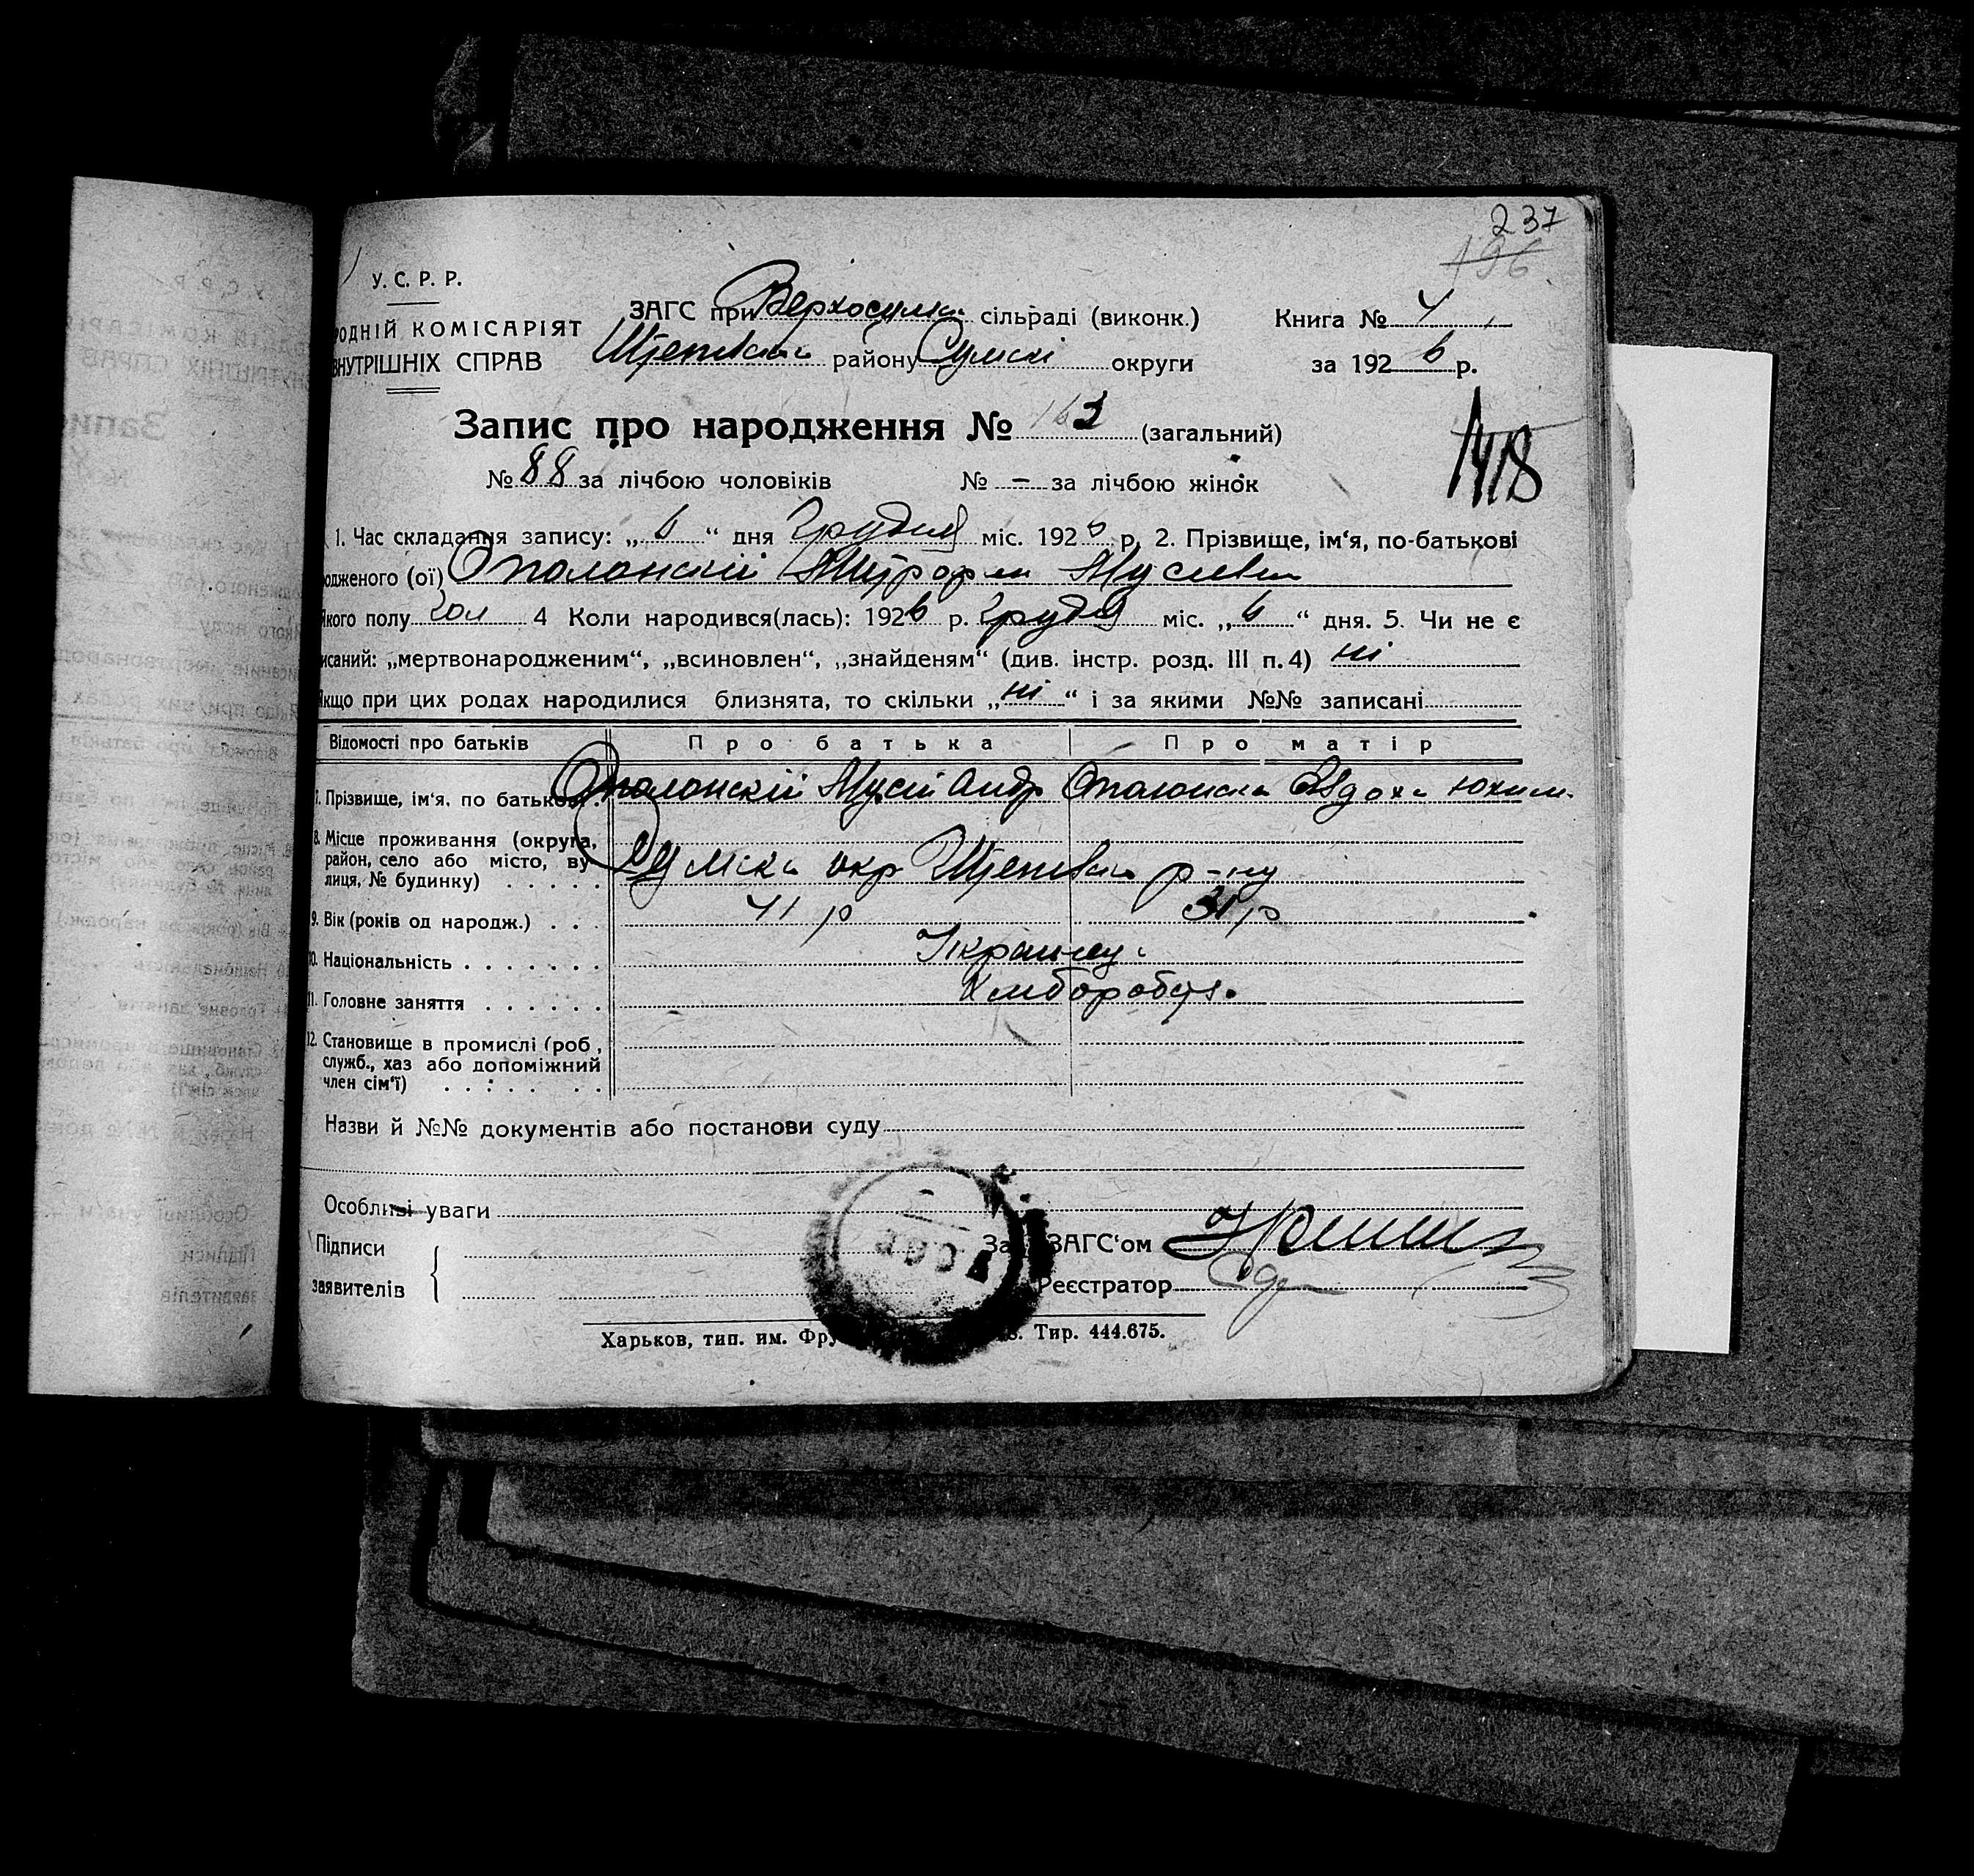 237
196
У. С. Р. Р.
РОДНІЙ КОМІСАРІЯТ
ВНУТРІШНІХ СПРАВ
ЗАГС при Верхосулка сільраді (виконк.)
районy Сумскі округи
Книга № 4
за 1926 р.
Запис про народження № 163 (загальний)
1418
№ 88 за лічбою чоловіків № – за лічбою жінок
1. Час складання запису: „6“ дня Грудня міс. 1926 р. 2. Прізвище, ім‘я, по-батькові
одженого (ої) Ополонскій Мусієви
якого полу чол 4 Коли народився(лась): 1926 р. Грудня міс. „6“ дня. 5. Чи не є
исаний: „мертвонародженим“, „всиновлен“, „знайденям“ (див. інстр. розд. III п. 4) ні
Якщо при цих родах народилися близнята, то скільки „ні“ і за якими №№ записані
Відомості про батьків Про батька Про матір
7. Прізвище, ім‘я, по батькові Ополонскій Мусій Андр Ополонска Явдоха Юхим.
8. Місце проживання (округа, район, село або місто, вулиця, № будинку) Сумска окр р-ну
9. Вік (років од народж.) 41 р 31 р
10. Національність Украінц
11. Головне заняття Хлібороби.
12. Становище в промислі (роб., служб., хаз або допоміжний член сім‘ї)
Назви й №№ документів або постанови суду
Особливі уваги
Підписи заявителів
Зав. ЗАГС‘ом
Реєстратор
Харьков, тип. им. Фру Тир. 444.675.